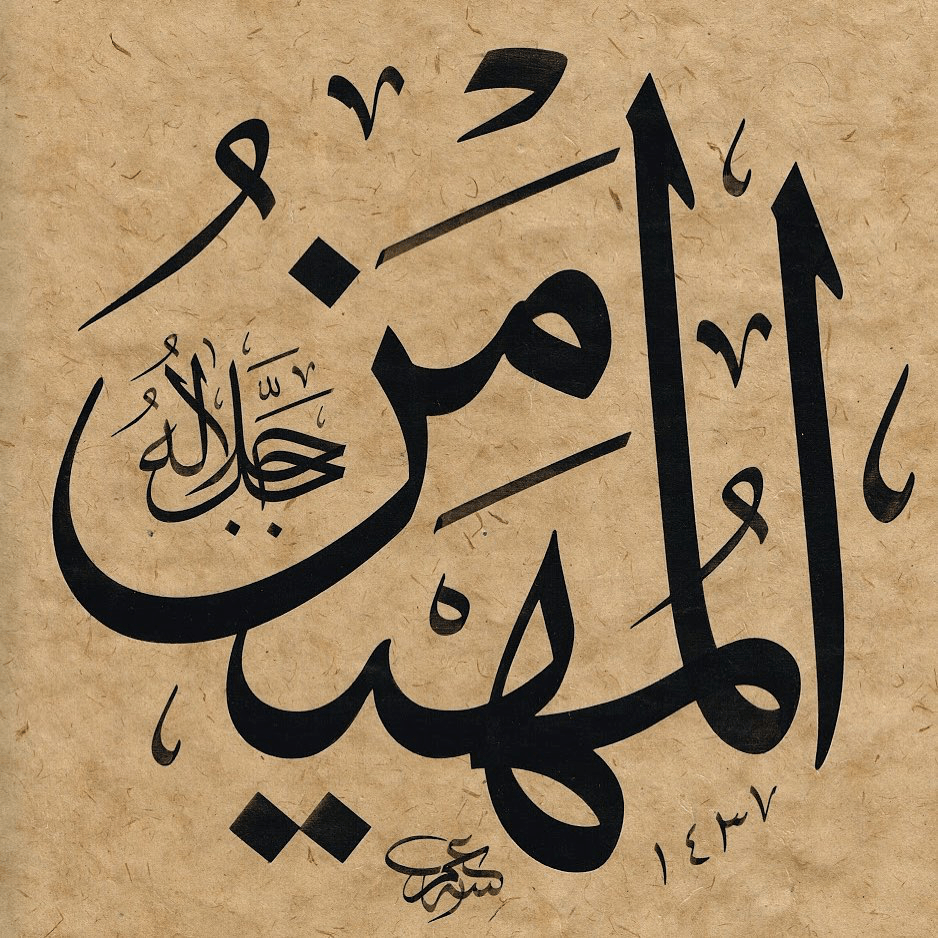 المُهَيْمَنُ
جَلَّ جَلَالُهُ
١٤٣٧